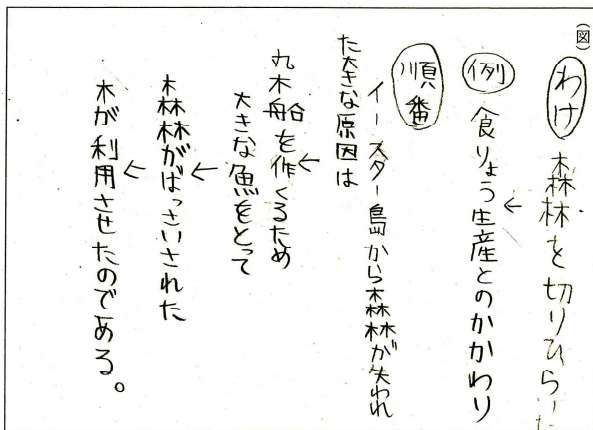 (図)
わけ 森林を切りひらいた
←
例 食りょう生産とのかかわり
順番
イースター島から森林が失われ
た大きな原因は
←
丸木船を作くるため
大きな魚をとって
←
森林がばっさいされた
←
木が利用させたのである。